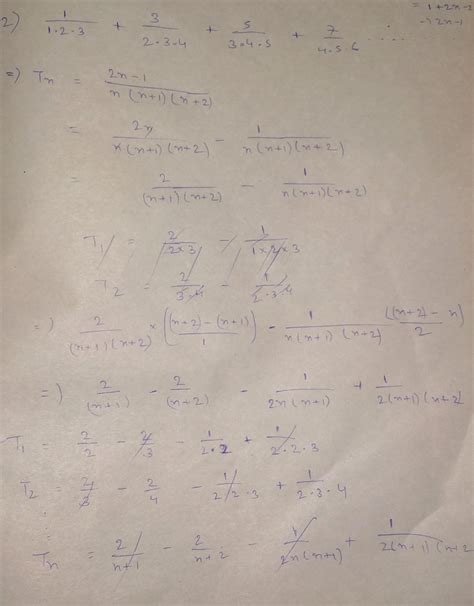 = 1+2n-2
→ 2n-1
2) 1/(1·2·3) + 3/(2·3·4) + 5/(3·4·5) + 7/(4·5·6) .....
=) Tn = (2n-1)/(n(n+1)(n+2))
= 2n/(n·(n+1)(n+2)) - 1/(n(n+1)(n+2))
= 2/((n+1)(n+2)) - 1/(n(n+1)(n+2))
T1 = 2/(2×3) - 1/(1×2×3)
T2 = 2/(3·4) - 1/(2·3·4)
=) 2/((n+1)(n+2)) × (((n+2)-(n+1))/1) - 1/(n(n+1)(n+2)) ((n+2)-n)/2
=) 2/(n+1) - 2/(n+2) - 1/(2n(n+1)) + 1/(2(n+1)(n+2
T1 = 2/2 - 2/3 - 1/(2·2) + 1/(2·2·3)
T2 = 2/3 - 2/4 - 1/(2·2·3) + 1/(2·3·4)
Tn = 2/(n+1) - 2/(n+2) - 1/(2n(n+1)) + 1/(2(n+1)(n+2